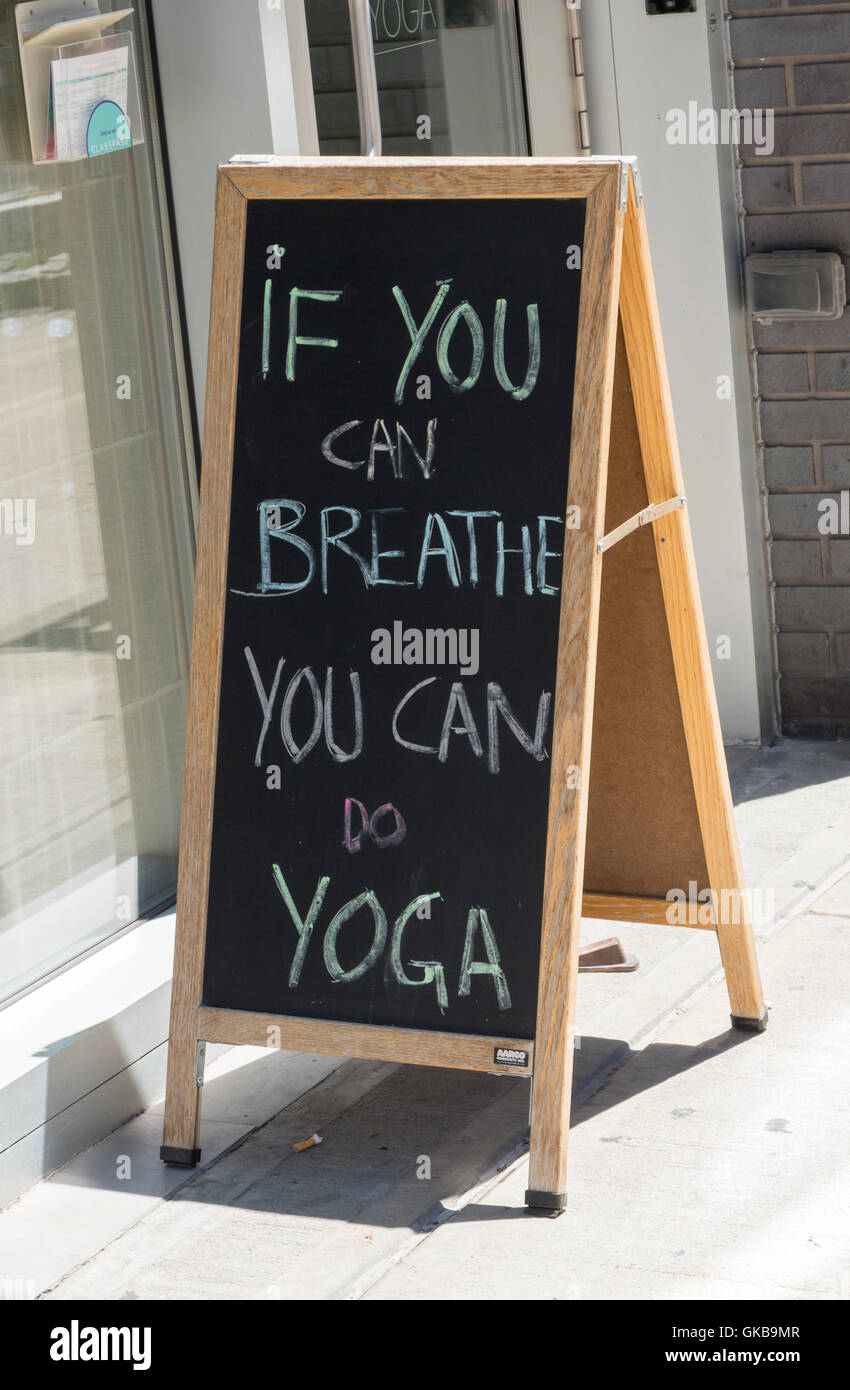 YOGA
CLASSPASS
iF YOU
CAN
BREATHE
YOU CAN
DO
YOGA
AARCO
PRODUCTS INC.
alamy
a
a
alamy
Image ID: GKB9MR
www.alamy.com